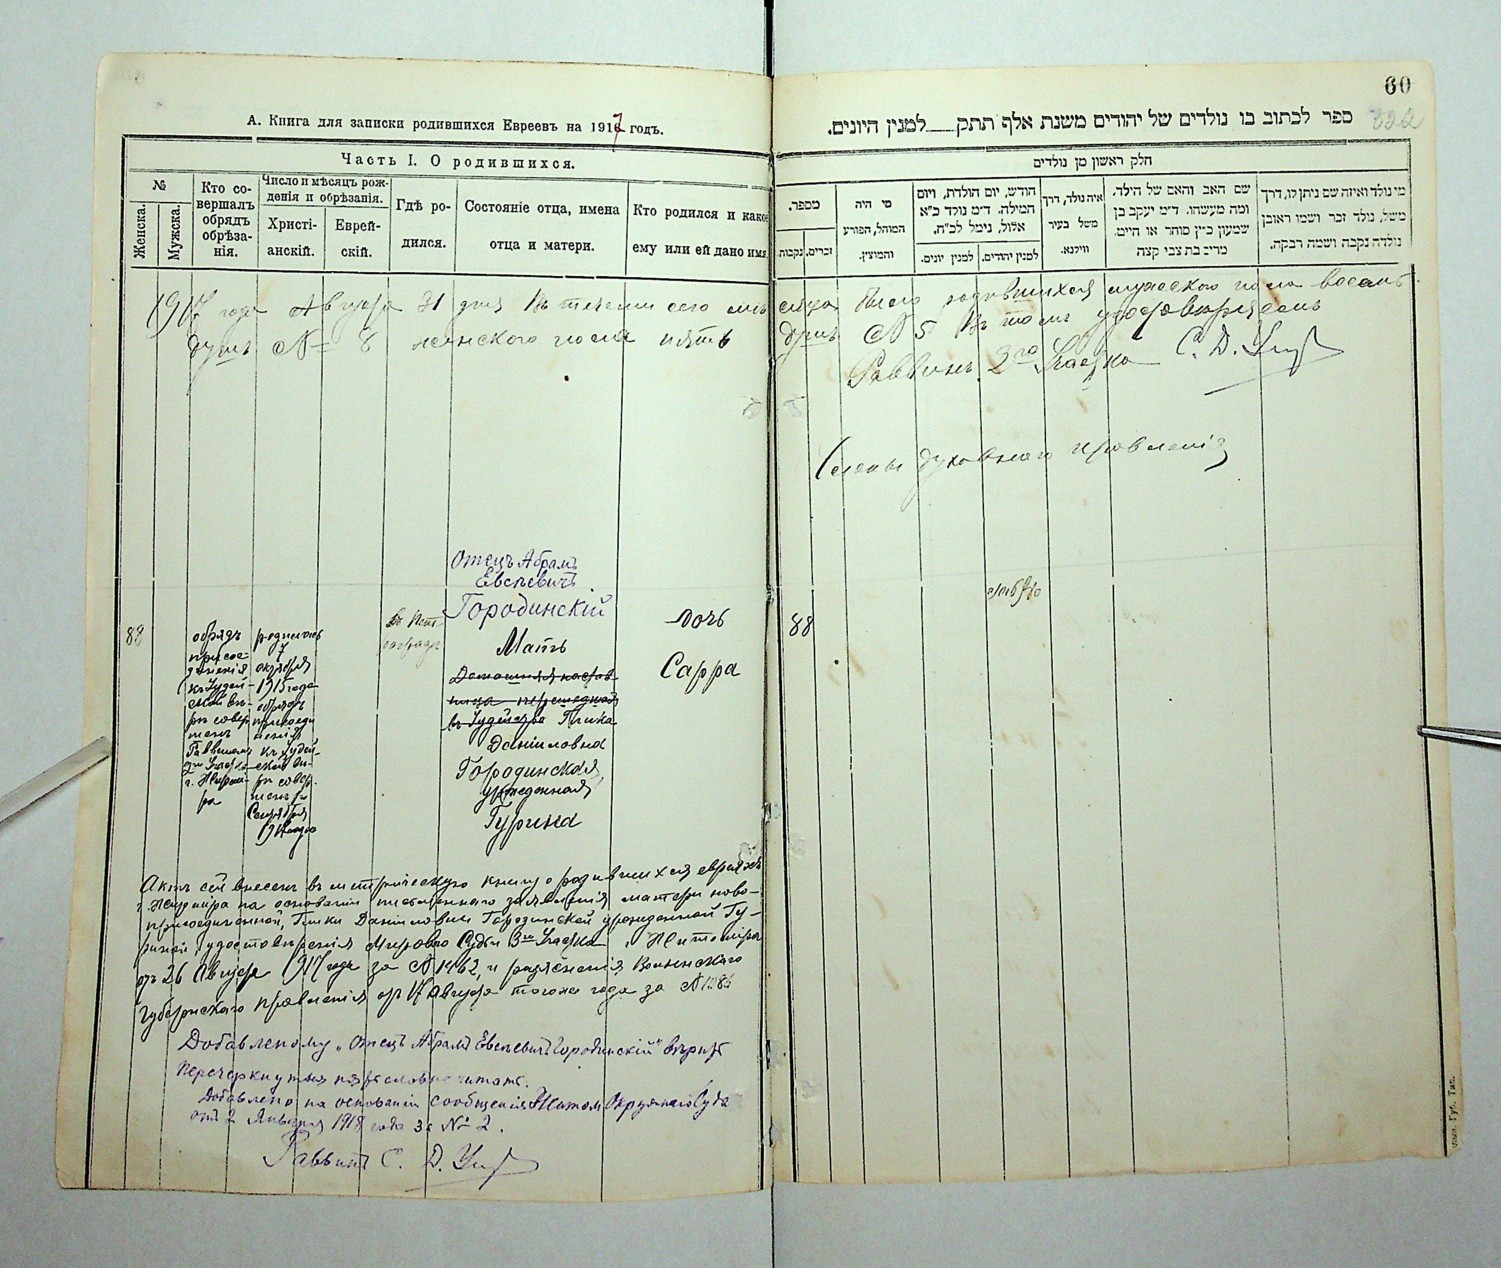 А. Книга для записки родившихся Евреевъ на 1917 годъ.
Часть I. О родившихся.
№
Женска.
Мужска.
Кто совершалъ обрядъ обрѣзанія.
Число и мѣсяцъ рожденія и обрѣзанія.
Христіанскій.
Еврейскій.
Гдѣ родился.
Состояніе отца, имена отца и матери.
Кто родился и какое ему или ей дано имя
60
322
ספר לכתוב בו נולדים של יהודים משנת אלף תתק___למנין היונים.
חלק ראשון מן נולדים
מספר.
זכרים.
נקבות
מי היה המוהל, הפורע והמוצץ.
חודש, יום הולדת, ויום המילה. ד״מ נולד כ״א אלול, נימל לכ״ח.
למנין יהודים.
למנין יונים.
איה נולד, דרך משל בעיר ווילנא.
שם האב והאם של הילד, ומה מעשהו. ד״מ יעקב בן שמעון כיין סוחר או חייט. מרים בת צבי קצה
מי נולד ואיזה שם ניתן לו, דרך משל, נולד זכר ושמו ראובן נולדה נקבה ושמה רבקה.
1917 года Августа 31 дня Въ теченіи сего мѣсяца было родившихся мужеского пола восемь
душъ № 8 женского пола пять душъ № 5 въ томъ удостовѣряемъ
Раввинъ 2го Участка С. Д.
Члены духовнаго правленія
Отецъ Абрамъ
Евсѣевичъ
Городинскій
88
обрядъ
присое-
диненія
къ Іудей-
ской вѣ-
рѣ совер
шенъ
Раввиномъ
2го Участка
г. Житоми-
ра
родилась
7
октября
1915 года
обрядъ
присоеди
ненія
къ Іудей-
ской вѣ-
рѣ совер-
шенъ
Сентября
1917 года
Въ Пет-
роградѣ
Мать
въ Іудейство Гинка
Даніиловна
Городинская
урожденная
Гурина
дочь
Сарра
88
Актъ сей внесенъ въ метрическую книгу о родившихся евреяхъ
г. Житомира на основаніи письменнаго заявленія матери ново-
присоединенной, Гинки Даніиловны Городинской урожденной Гу-
риной, удостовѣренія Мирового Судьи 3го Участка г. Житомира
отъ 26 Августа 1917 года за № 1462, и разъясненія Волынскаго
Губернскаго правленія отъ 17 Августа того же года за №
Добавленому „Отецъ Абрамъ Евсѣевичъ Городинскій" вѣрить
Перечеркнутыя слова не читать.
Добавлено на основаніи сообщенія Житом. Окружнаго Суда
отъ 2 Января 1918 года за № 2.
Раввинъ С. Д.